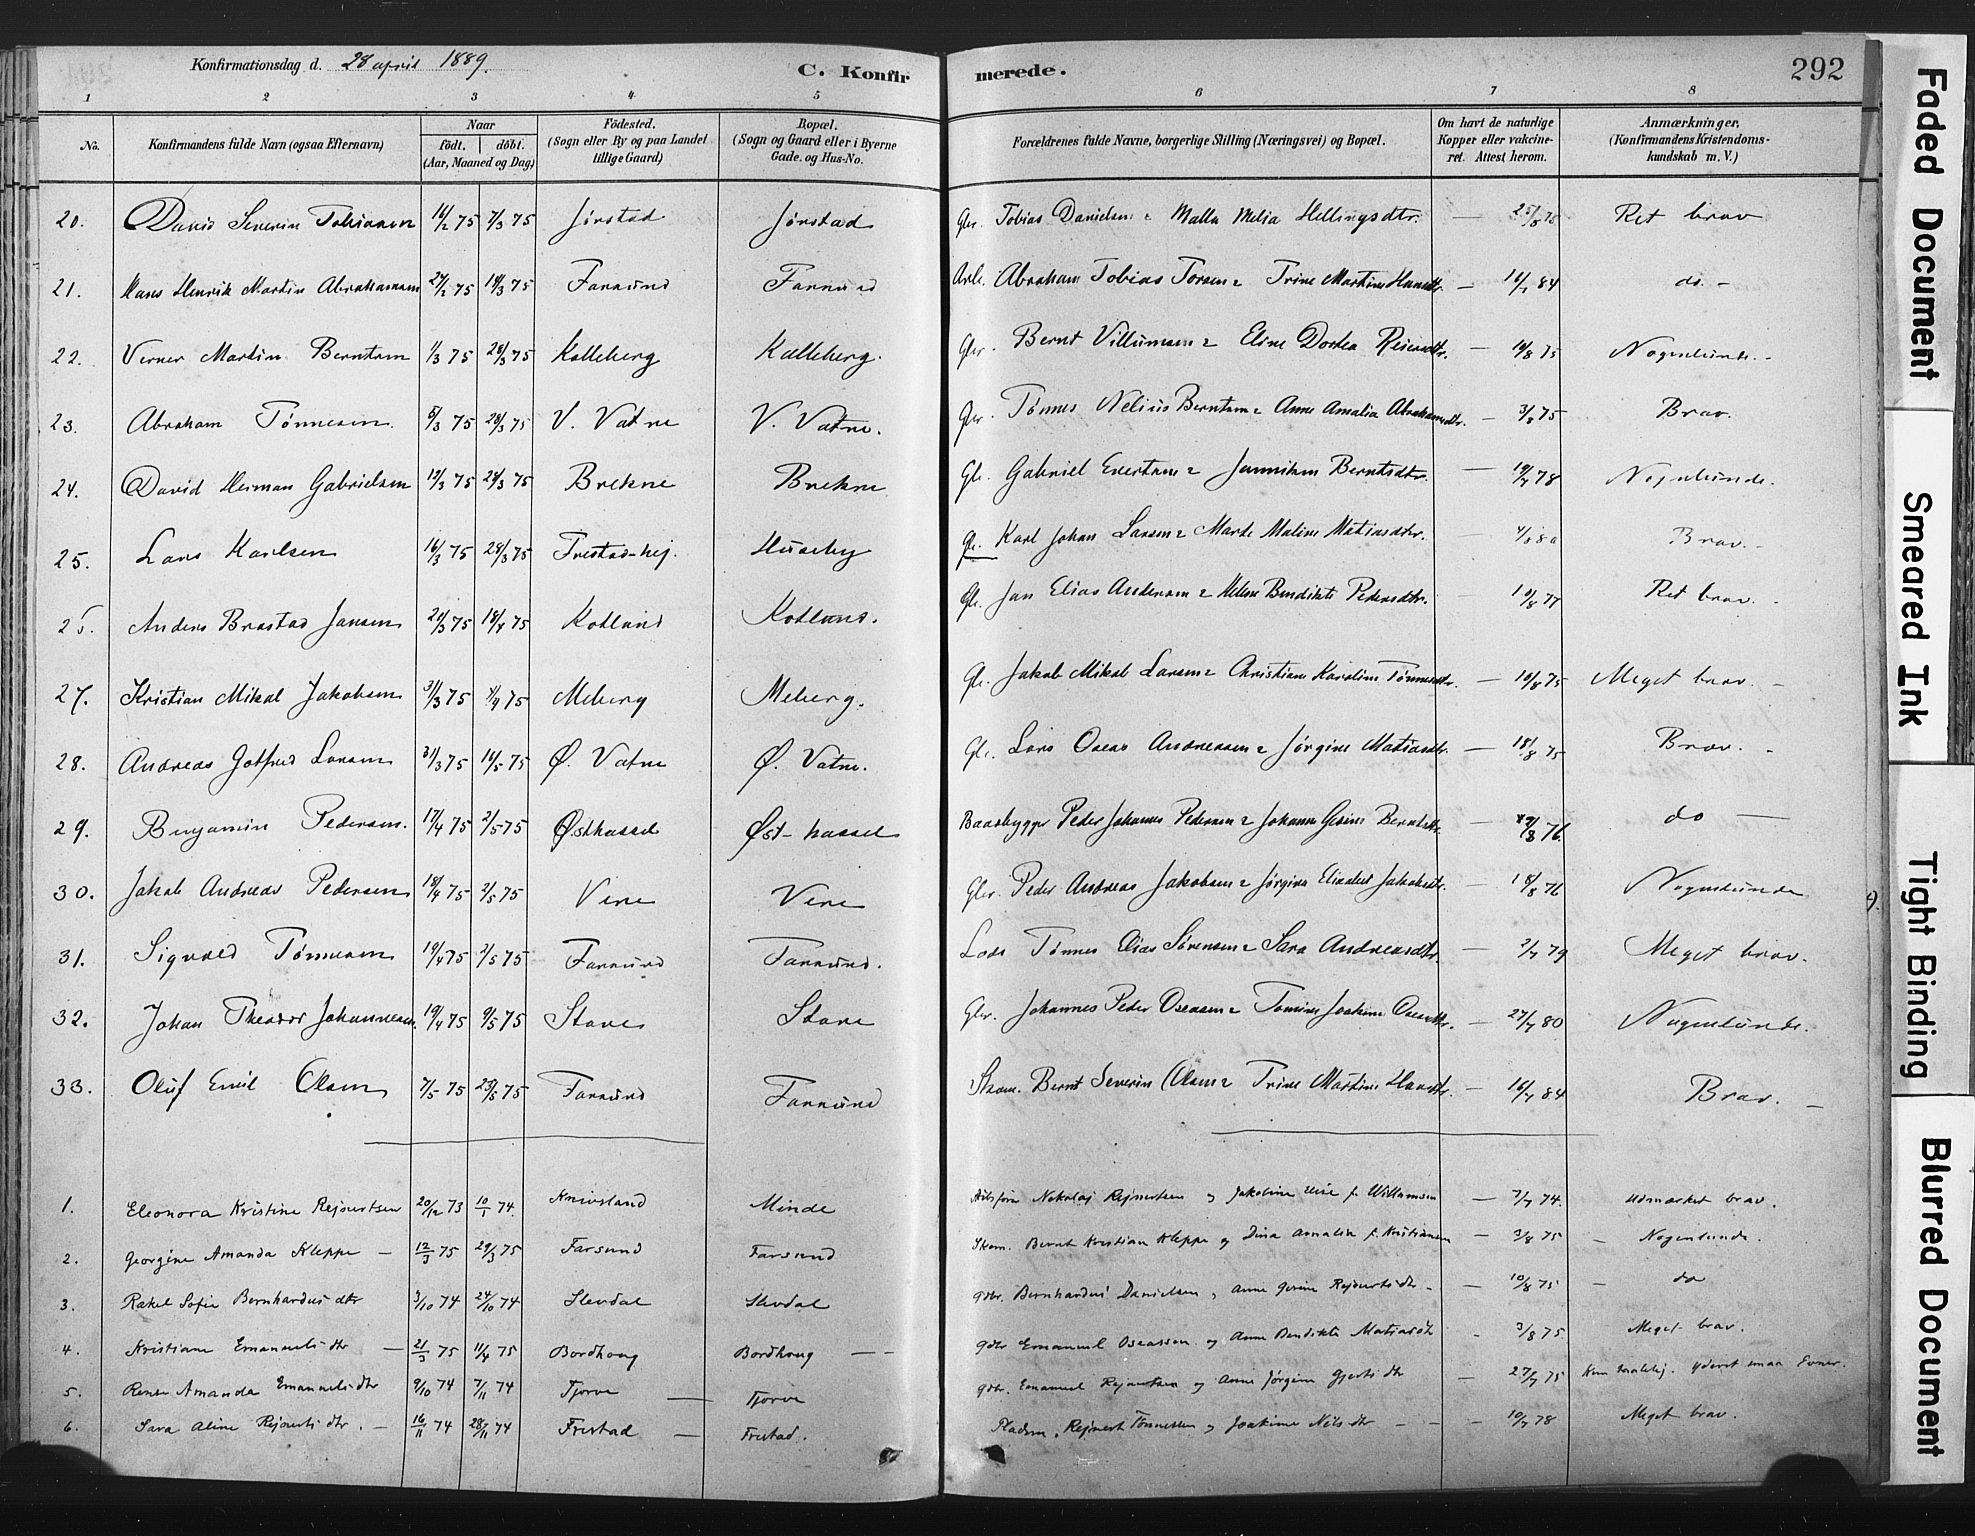 Konfirmationsdag d. 28 april 1889.
C. Konfirmerede.
292
1 2 3 4 5 6 7 8
No.
Konfirmandens fulde Navn (ogsaa Efternavn)
Naar
födt. döbt.
(Aar, Maaned og Dag)
Födested.
(Sogn eller By og paa Landet
tillige Gaard)
Bopæl.
(Sogn og Gaard eller i Byerne
Gade. og Hus-No.
Forældrenes fulde Navne, borgerlige Stilling (Næringsvei) og Bopæl.
Om havt de naturlige
Kopper eller vakcine-
ret. Attest herom.
Anmærkninger,
(Konfirmandens Kristendoms-
kundskab m. V.)
20. David Severin Tobiassen 16/2 75 7/3 75 Jørstad Jørstad Gbr. Tobias Danielsen & Malla Melia Hellingsdtr. — 25/8 75 Ret brav
21. Hans Henrik Martin Abrahamsen 27/2 75 14/3 75 Farsund Farsund Arb. Abraham Tobias Torsen & Trine Martine Hansdtr. — 16/7 84 do. -
22. Verner Martin Berntsen 1/3 75 28/3 75 Kalleberg Kalleberg. Gbr. Bernt Villumsen & Eline Dortea Reiersdtr. — 16/8 75 Nogenlunde. -
23. Abraham Tønnesen 5/3 75 28/3 75 V. Vatne V. Vatne. Gbr. Tønnes Nelius Berntsen & Anne Amalia Abrahamsdtr. — 3/8 75 Brav.
24. David Herman Gabrielsen 12/3 75 29/3 75 Brekne Brekne Gbr. Gabriel Evertsen & Berntsdtr. — 19/7 78 Nogenlunde.
25. Lars Karlsen 16/3 75 28/3 75 Frestad-hej. Huseby Gbr. Karl Johan Larsen & Marte Maline Matiasdtr. — 4/8 80 Brav. -
26. Anders Brastad Jansen 20/3 75 18/4 75 Kotland Kotland. Gbr. Jan Elias Andersen & Helene Bendikte Pedersdtr. — 19/8 77 Ret brav. -
27. Kristian Mikal Jakobsen 31/3 75 4/4 75 Meberg Meberg. Gbr. Jakob Mikal Larsen & Christiane Karoline Tønnesdtr. — 10/8 75 Meget brav. -
28. Andreas Gotfred Larsen 31/3 75 16/5 75 Ø. Vatne Ø. Vatne. Gbr. Lars Oseas Andreassen & Jørgine Matiasdtr. — 18/8 75 Brav. -
29. Benjamin Pedersen. 17/4 75 2/5 75 Østhassel Øst-hassel Baadbygger Peder Johannes Pedersen & Johanne Gesine Berntsdtr. — 29/8 76. do —
30. Jakob Andreas Pedersen 18/4 75 2/5 75 Vere Vere Gbr. Peder Andreas Jakobsen & Jørgine Elisabet Jakobsdtr. — 18/8 76 Nogenlunde
31. Sigvald Tønnesen 19/4 75 2/5 75 Farsund Farsund. Lods Tønnes Elias Sørensen & Sara Andreasdtr. — 2/7 79 Meget brav.
32. Johan Theodor Johannesen. 19/4 75 9/5 75 Stave Stave Gbr. Johannes Peder Oseasen & Tomine Joakime Oseasdtr. — 27/7 80 Nogenlunde.
33. Oluf Emil Olsen 7/5 75 23/5 75 Farsund Farsund Skom. Bernt Severin Olsen & Trine Martine Hansdtr. — 16/7 84 Brav. —
1. Eleonora Kristine Rejnertsen 20/12 73 10/1 74. Knivsland Minde Nikolaj Rejnertsen og Jakobine Elise f. Willumsen — 7/7 74. Udmærket brav.
2. Georgine Amanda Kleppe — 12/3 75 29/3 75 Farsund Farsund Skom. Bernt Kristian Kleppe og Dina Amalia f. Kristiansen — 3/8 75 — Nogenlunde.
3. Rakel Sofie Bernhardus dtr 3/10 74 24/10 74 Slevdal Slevdal gbr. Bernhardus Danielsen og Anne Gesine Rejnertsdtr — — 10/8 75 — do
4. Kristiane Emanuels dtr — 21/3 75 11/4 75 Bordhoug Bordhoug — — gbr Emanuel Oseassen og Anne Bendikte Matiasdtr - 3/8 75 Meget brav.
5. Amanda Emanuels dtr 9/10 74 7/11 74 Tjorve — Tjorve gbr. Emanuel Rejnertsen og Anne Jørgine Gjerts dtr — 27/7 75 yderst smaa Evner.
6. Sara Aline Rejnerts dtr. — 16/11 74 28/11 74 Frestad — Frestad. Pladsm. Rejnert Tønnessen og Joakime Nils dtr — — 10/7 78 Meget brav.
Faded Document
Smeared Ink
Tight Binding
Blurred Document